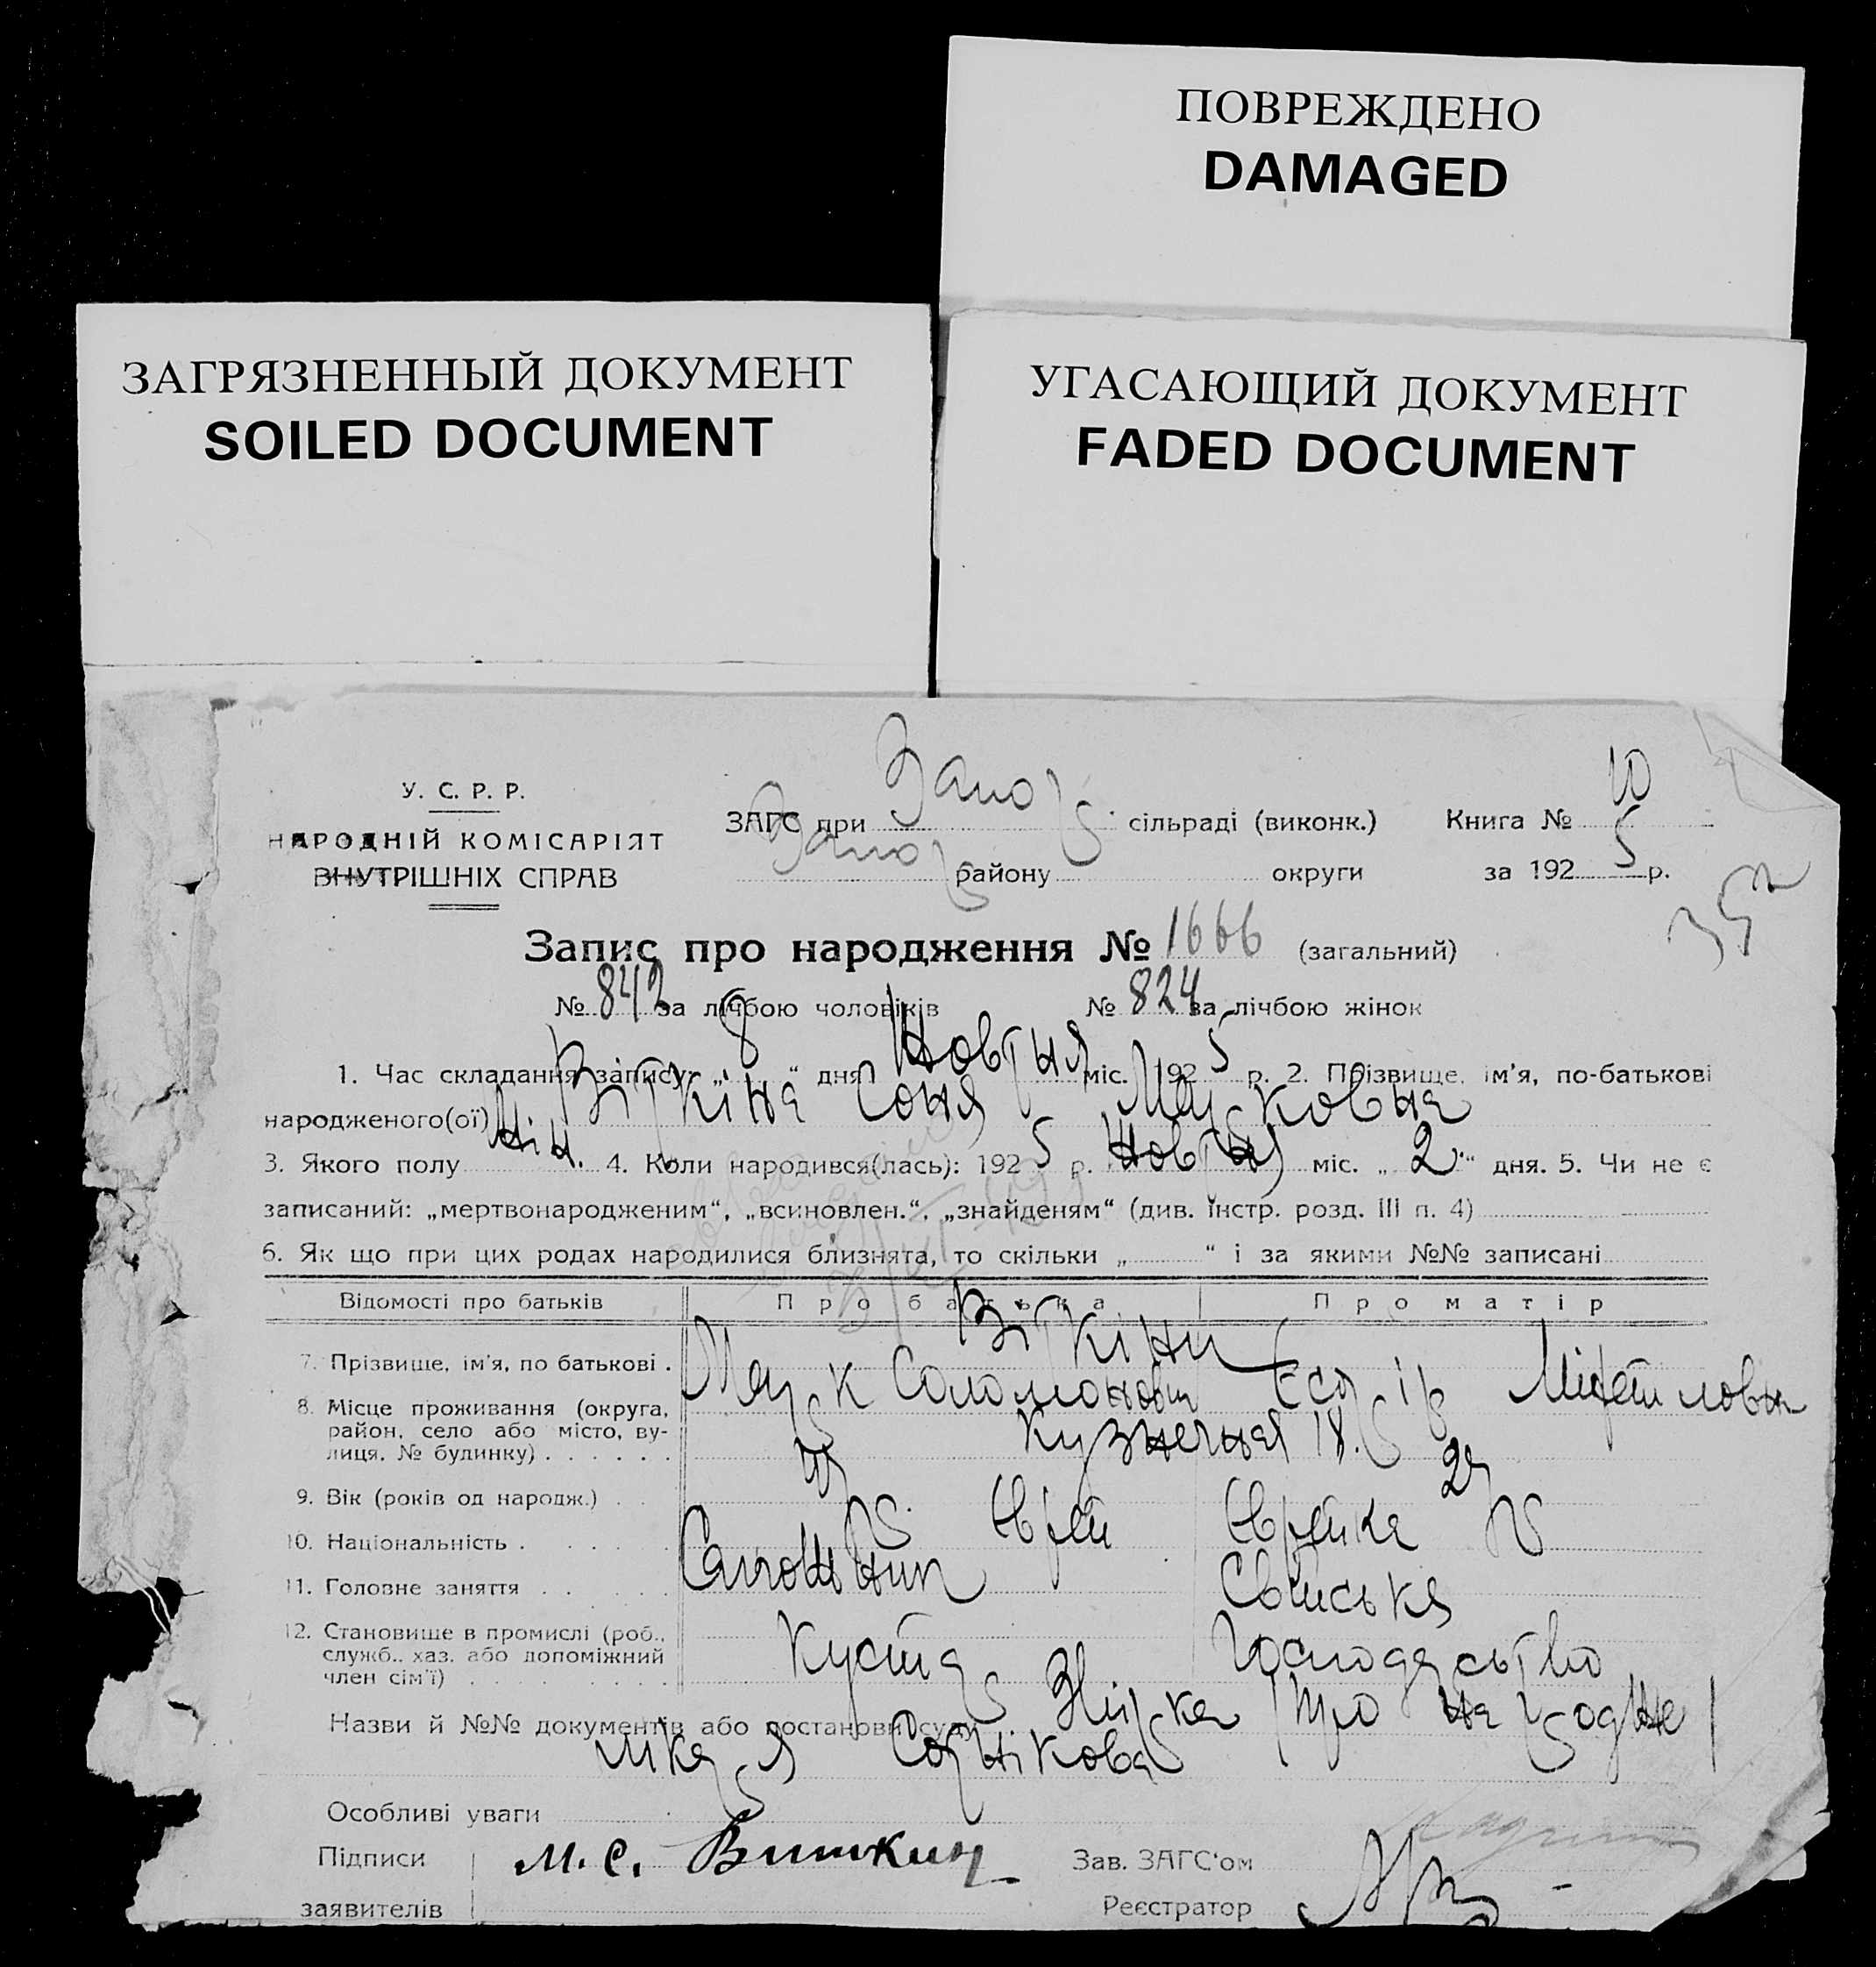 ПОВРЕЖДЕНО
DAMAGED
ЗАГРЯЗНЕННЫЙ ДОКУМЕНТ
SOILED DOCUMENT
УГАСАЮЩИЙ ДОКУМЕНТ
FADED DOCUMENT
У. С. Р. Р.
НАРОДНІЙ КОМІСАРІЯТ
ВНУТРІШНІХ СПРАВ
ЗАГС при Запор. сільраді (виконк.) Книга № 10
Запор району округи за 1925 р.
Запис про народження № 1666 (загальний)
№ 842 за лічбою чоловіків № 824 за лічбою жінок
1. Час складання запису: „8“ дня Жовтня міс. 1925 р. 2. Прізвище, ім'я, по-батькові
народженого(ої) Віткіна Соня Марковна
3. Якого полу жін. 4. Коли народився(лась): 1925 р. Жовтня міс. „2“ дня. 5. Чи не є
записаний: „мертвонародженим“, „всиновлен.“, „знайденям“ (див. інстр. розд. III п. 4)
6. Як що при цих родах народилися близнята, то скільки „ “ і за якими №№ записані
Відомості про батьків Про батька Про матір
Віткіни
7. Прізвище, ім'я, по батькові . Марк Соломонович Єсфір
8. Місце проживання (округа,
район, село або місто, ву-
лиця, № будинку) . . . . . . Кузнечная 18.
9. Вік (років од народж.) . .
10. Національність . Єврей Єврейка
11. Головне заняття . . . . Сапожник Свійське
12. Становище в промислі (роб.,
служб., хаз. або допоміжний
член сім'ї) . . . . . . . . . Кустар Господарство
Назви й №№ документів або постанови суду Збірка про народже
лікаря
Особливі уваги
Підписи М. С. Виткин Зав. ЗАГС'ом
заявителів Реєстратор